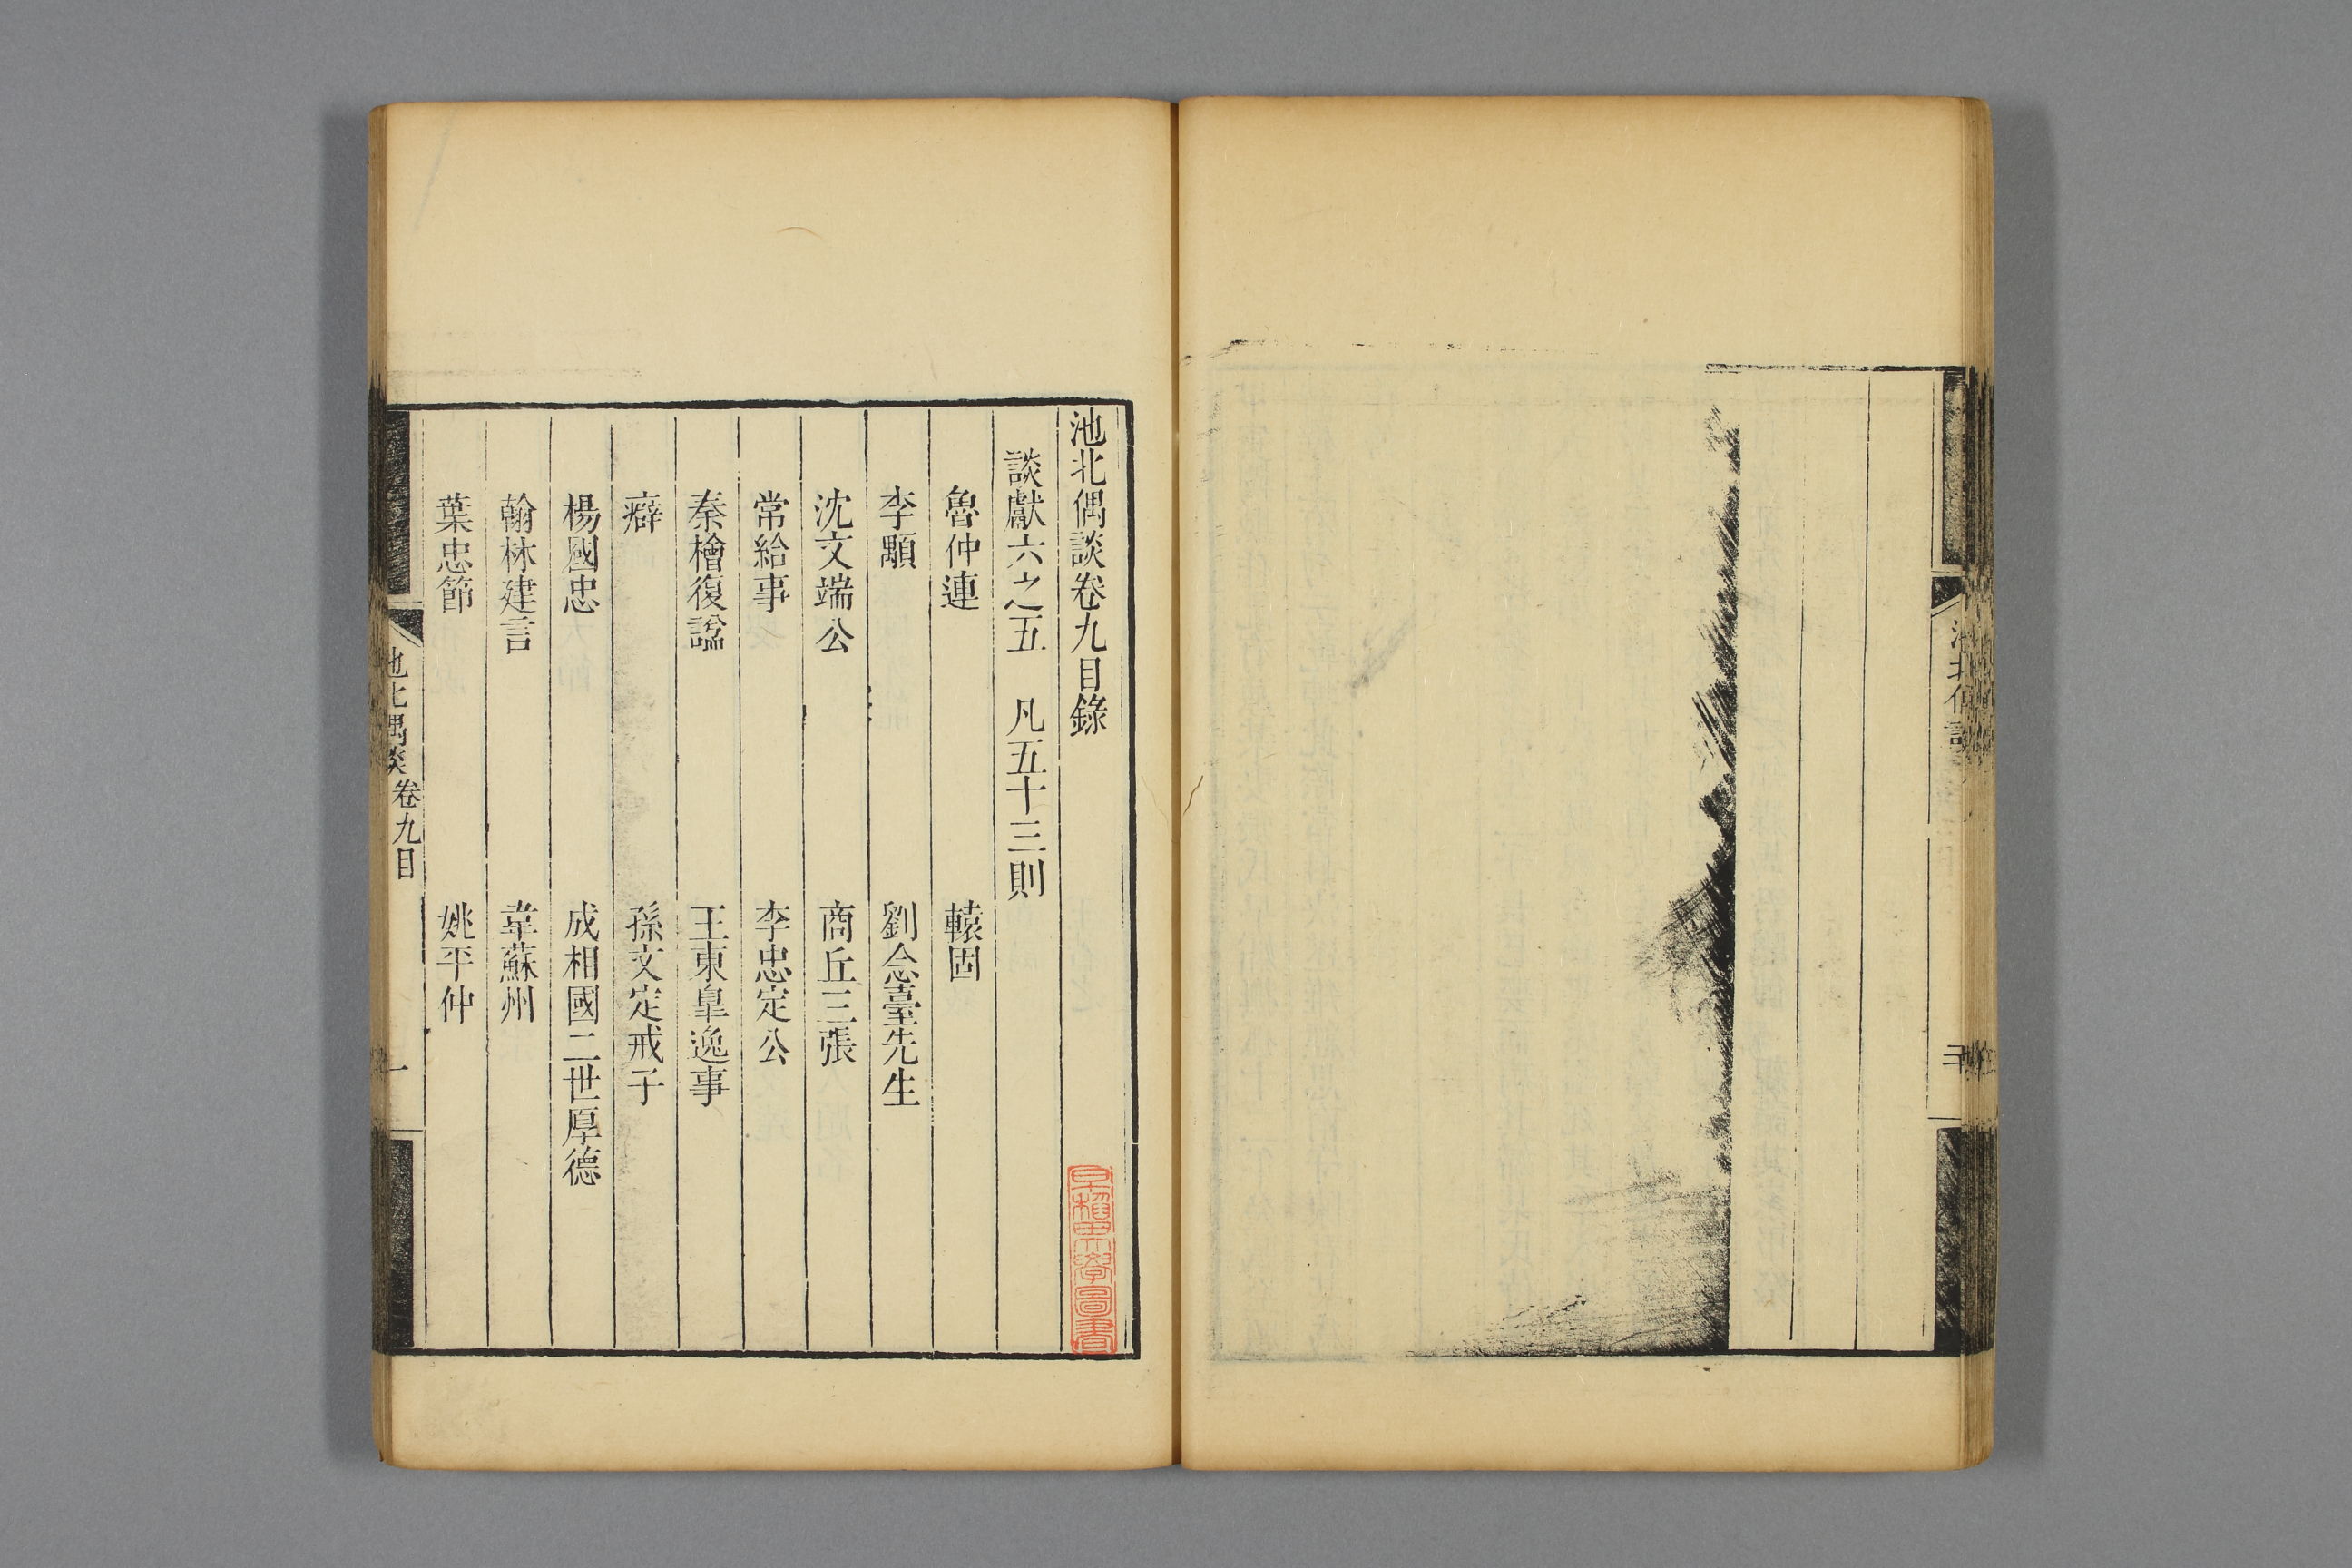 池北偶談卷九目錄
談獻六之五　凡五十三則
魯仲連　轅固
李顒　劉念臺先生
沈文端公　商丘三張
常給事　李忠定公
秦檜復諡　王東臯逸事
癖　孫文定戒子
楊國忠　成相國二世厚德
翰林建言　韋蘇州
葉忠節　姚平仲
池北偶談　卷九目　一
早稲田大學圖書